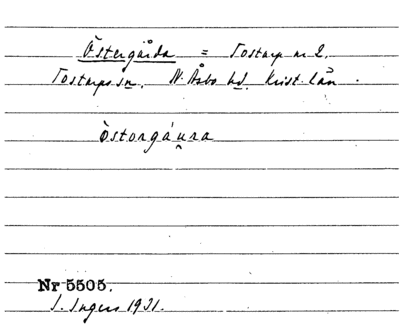 Östergårda = Tostarp nr 2.
Tostarps sn. N. Åsbo hd. Krist. län.
Òstorgáu̯ra
Nr 5505.
I. Ingers 1931.